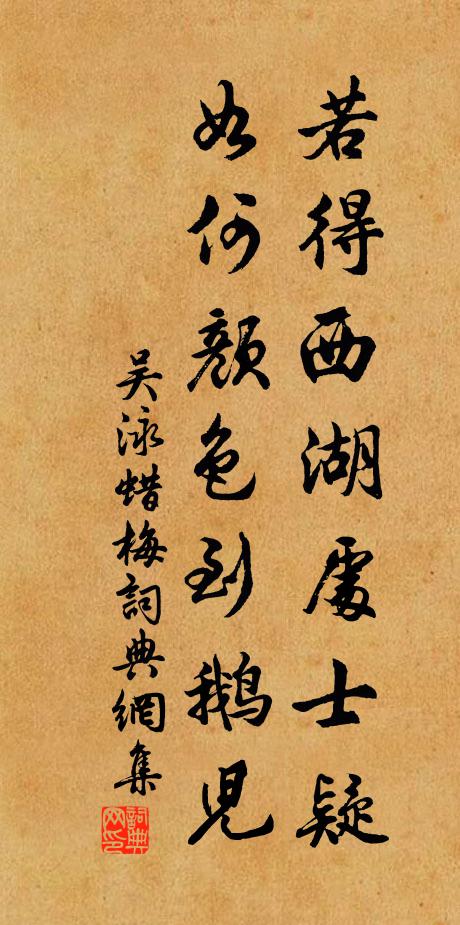 若得西湖處士疑
如何顏色到鵝兒
吳泳蜡梅詞典網集
詞典网印